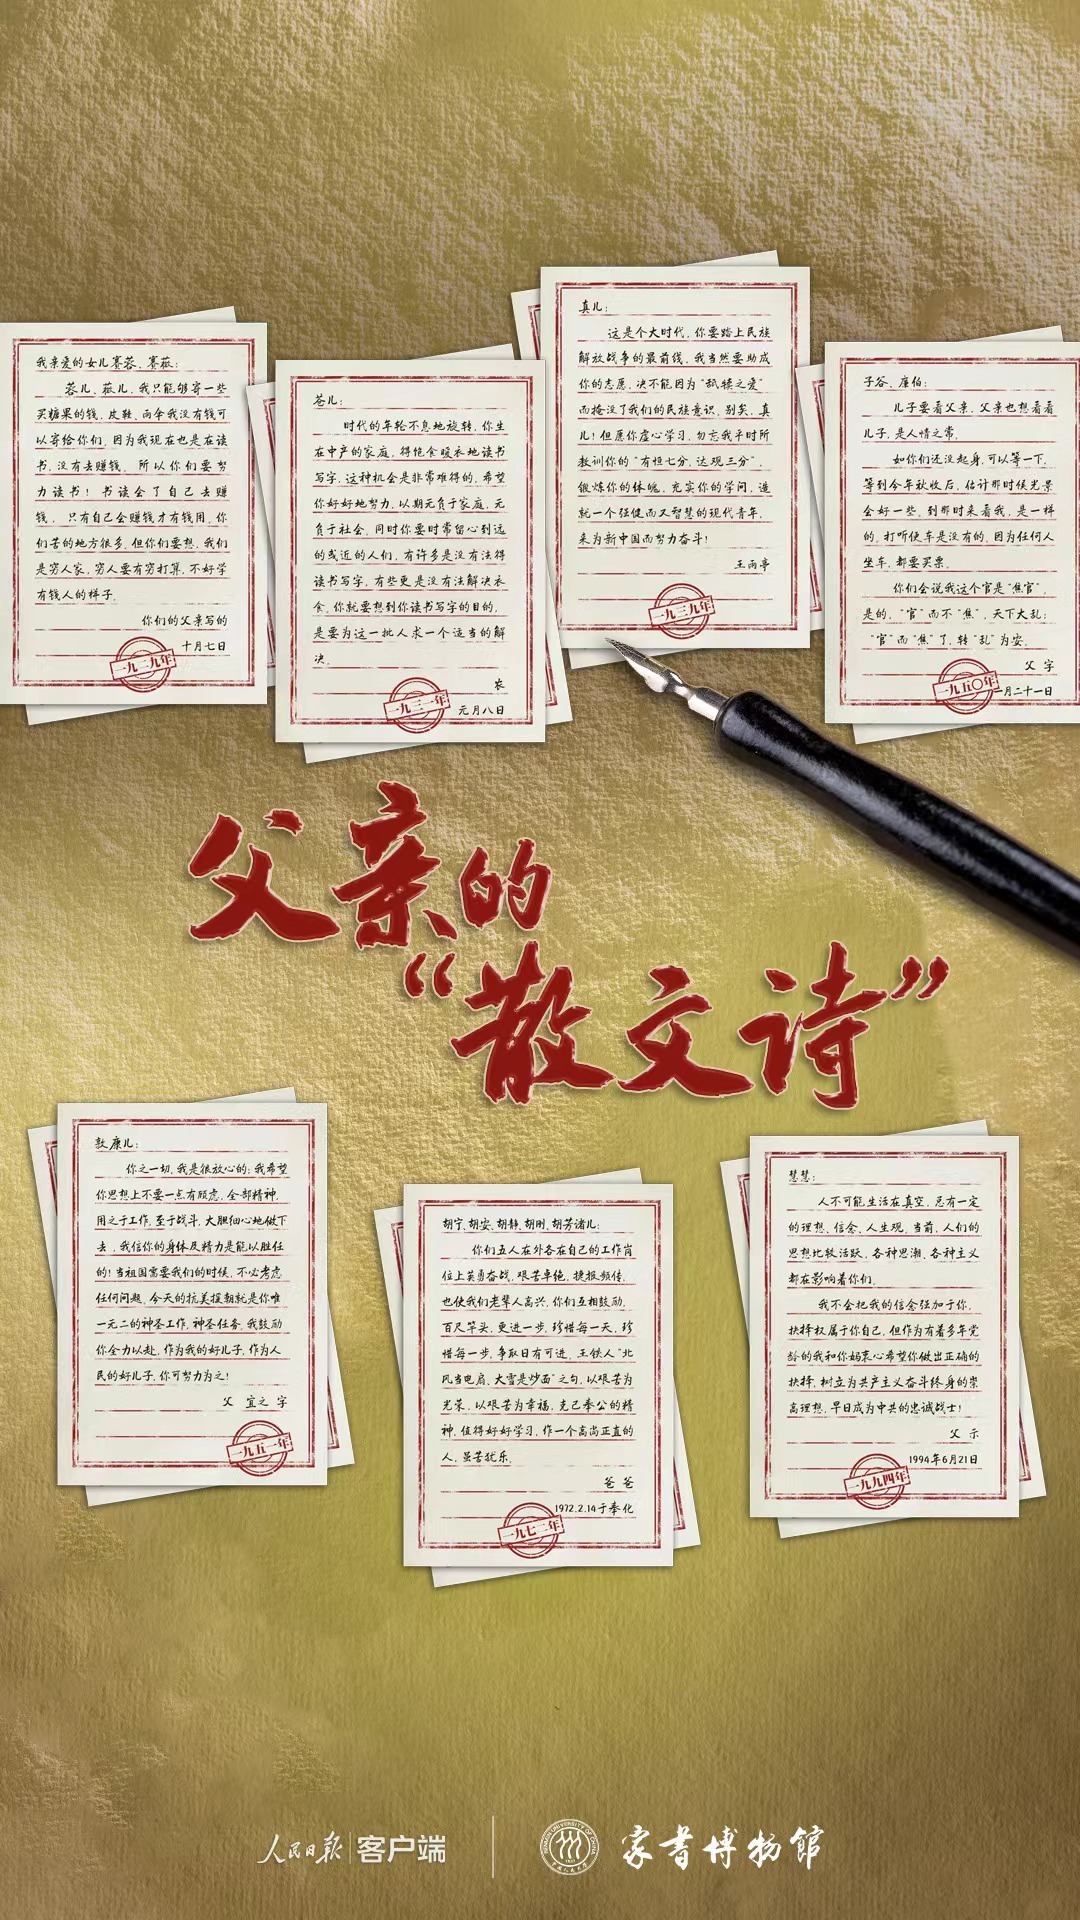 我亲爱的女儿赛蓉、赛菘：
蓉儿、菘儿，我只能够寄一些
买糖果的钱，皮鞋、雨伞我没有钱可
以寄给你们，因为我现在也是在读
书，没有去赚钱，所以你们要努
力读书！书读会了自己去赚
钱，只有自己会赚钱才有钱用，你
们苦的地方很多，但你们要想，我们
是穷人家，穷人要有穷打算，不好学
有钱人的样子。
你们的父亲写的
十月七日
一九二九年
苍儿：
时代的年轮不息地旋转，你生
在中产的家庭，得饱食暖衣地读书
写字，这种机会是非常难得的，希望
你好好地努力，以期无负于家庭，无
负于社会，同时你要时常留心到远
的或近的人们，有许多是没有法得
读书写字，有些更是没有法解决衣
食，你就要想到你读书写字的目的，
是要为这一批人求一个适当的解
决。
农
元月八日
一九三一年
真儿：
这是个大时代，你要踏上民族
解放战争的最前线，我当然要助成
你的志愿，决不能因为“舐犊之爱”
而掩没了我们的民族意识，别矣，真
儿！但愿你虚心学习，勿忘我平时所
教训你的“有恒七分，达观三分”，
锻炼你的体魄，充实你的学问，造
就一个强健而又智慧的现代青年，
来为新中国而努力奋斗！
王雨亭
一九三九年
子谷、廉伯：
儿子要看父亲，父亲也想看看
儿子，是人情之常。
如你们还没起身，可以等一下，
等到今年秋收后，估计那时候光景
会好一些，到那时来看我，是一样
的，打听便车是没有的，因为任何人
坐车，都要买票。
你们会说我这个官是“焦官”，
是的，“官”而不“焦”，天下大乱；
“官”而“焦”了，转“乱”为安。
父 字
一月二十一日
一九五〇年
父亲的
“散文诗”
敦康儿：
你之一切，我是很放心的；我希望
你思想上不要一点有顾虑，全部精神，
用之于工作，至于战斗，大胆细心地做下
去，我信你的身体及精力是能以胜任
的！当祖国需要我们的时候，不必考虑
任何问题，今天的抗美援朝就是你唯
一无二的神圣工作，神圣任务，我鼓励
你全力以赴，作为我的好儿子，作为人
民的好儿子，你可努力为之！
父 宜之 字
一九五一年
胡宁、胡安、胡静、胡刚、胡芳诸儿：
你们五人在外各在自己的工作岗
位上英勇奋战，艰苦卓绝，捷报频传，
也使我们老辈人高兴，你们互相鼓励，
百尺竿头，更进一步，珍惜每一天，珍
惜每一步，争取日有可进，王铁人“北
风当电扇，大雪是炒面”之句，以艰苦为
光荣，以艰苦为幸福，克己奉公的精
神，值得好好学习，作一个高尚正直的
人，虽苦犹乐。
爸爸
1972.2.14于奉化
一九七二年
慧慧：
人不可能生活在真空，总有一定
的理想、信念、人生观，当前，人们的
思想比较活跃，各种思潮、各种主义
都在影响着你们。
我不会把我的信念强加于你，
抉择权属于你自己，但作为有着多年党
龄的我和你妈衷心希望你做出正确的
抉择，树立为共产主义奋斗终身的崇
高理想，早日成为中共的忠诚战士！
父 示
1994年6月21日
一九九四年
人民日报 客户端
家书博物馆